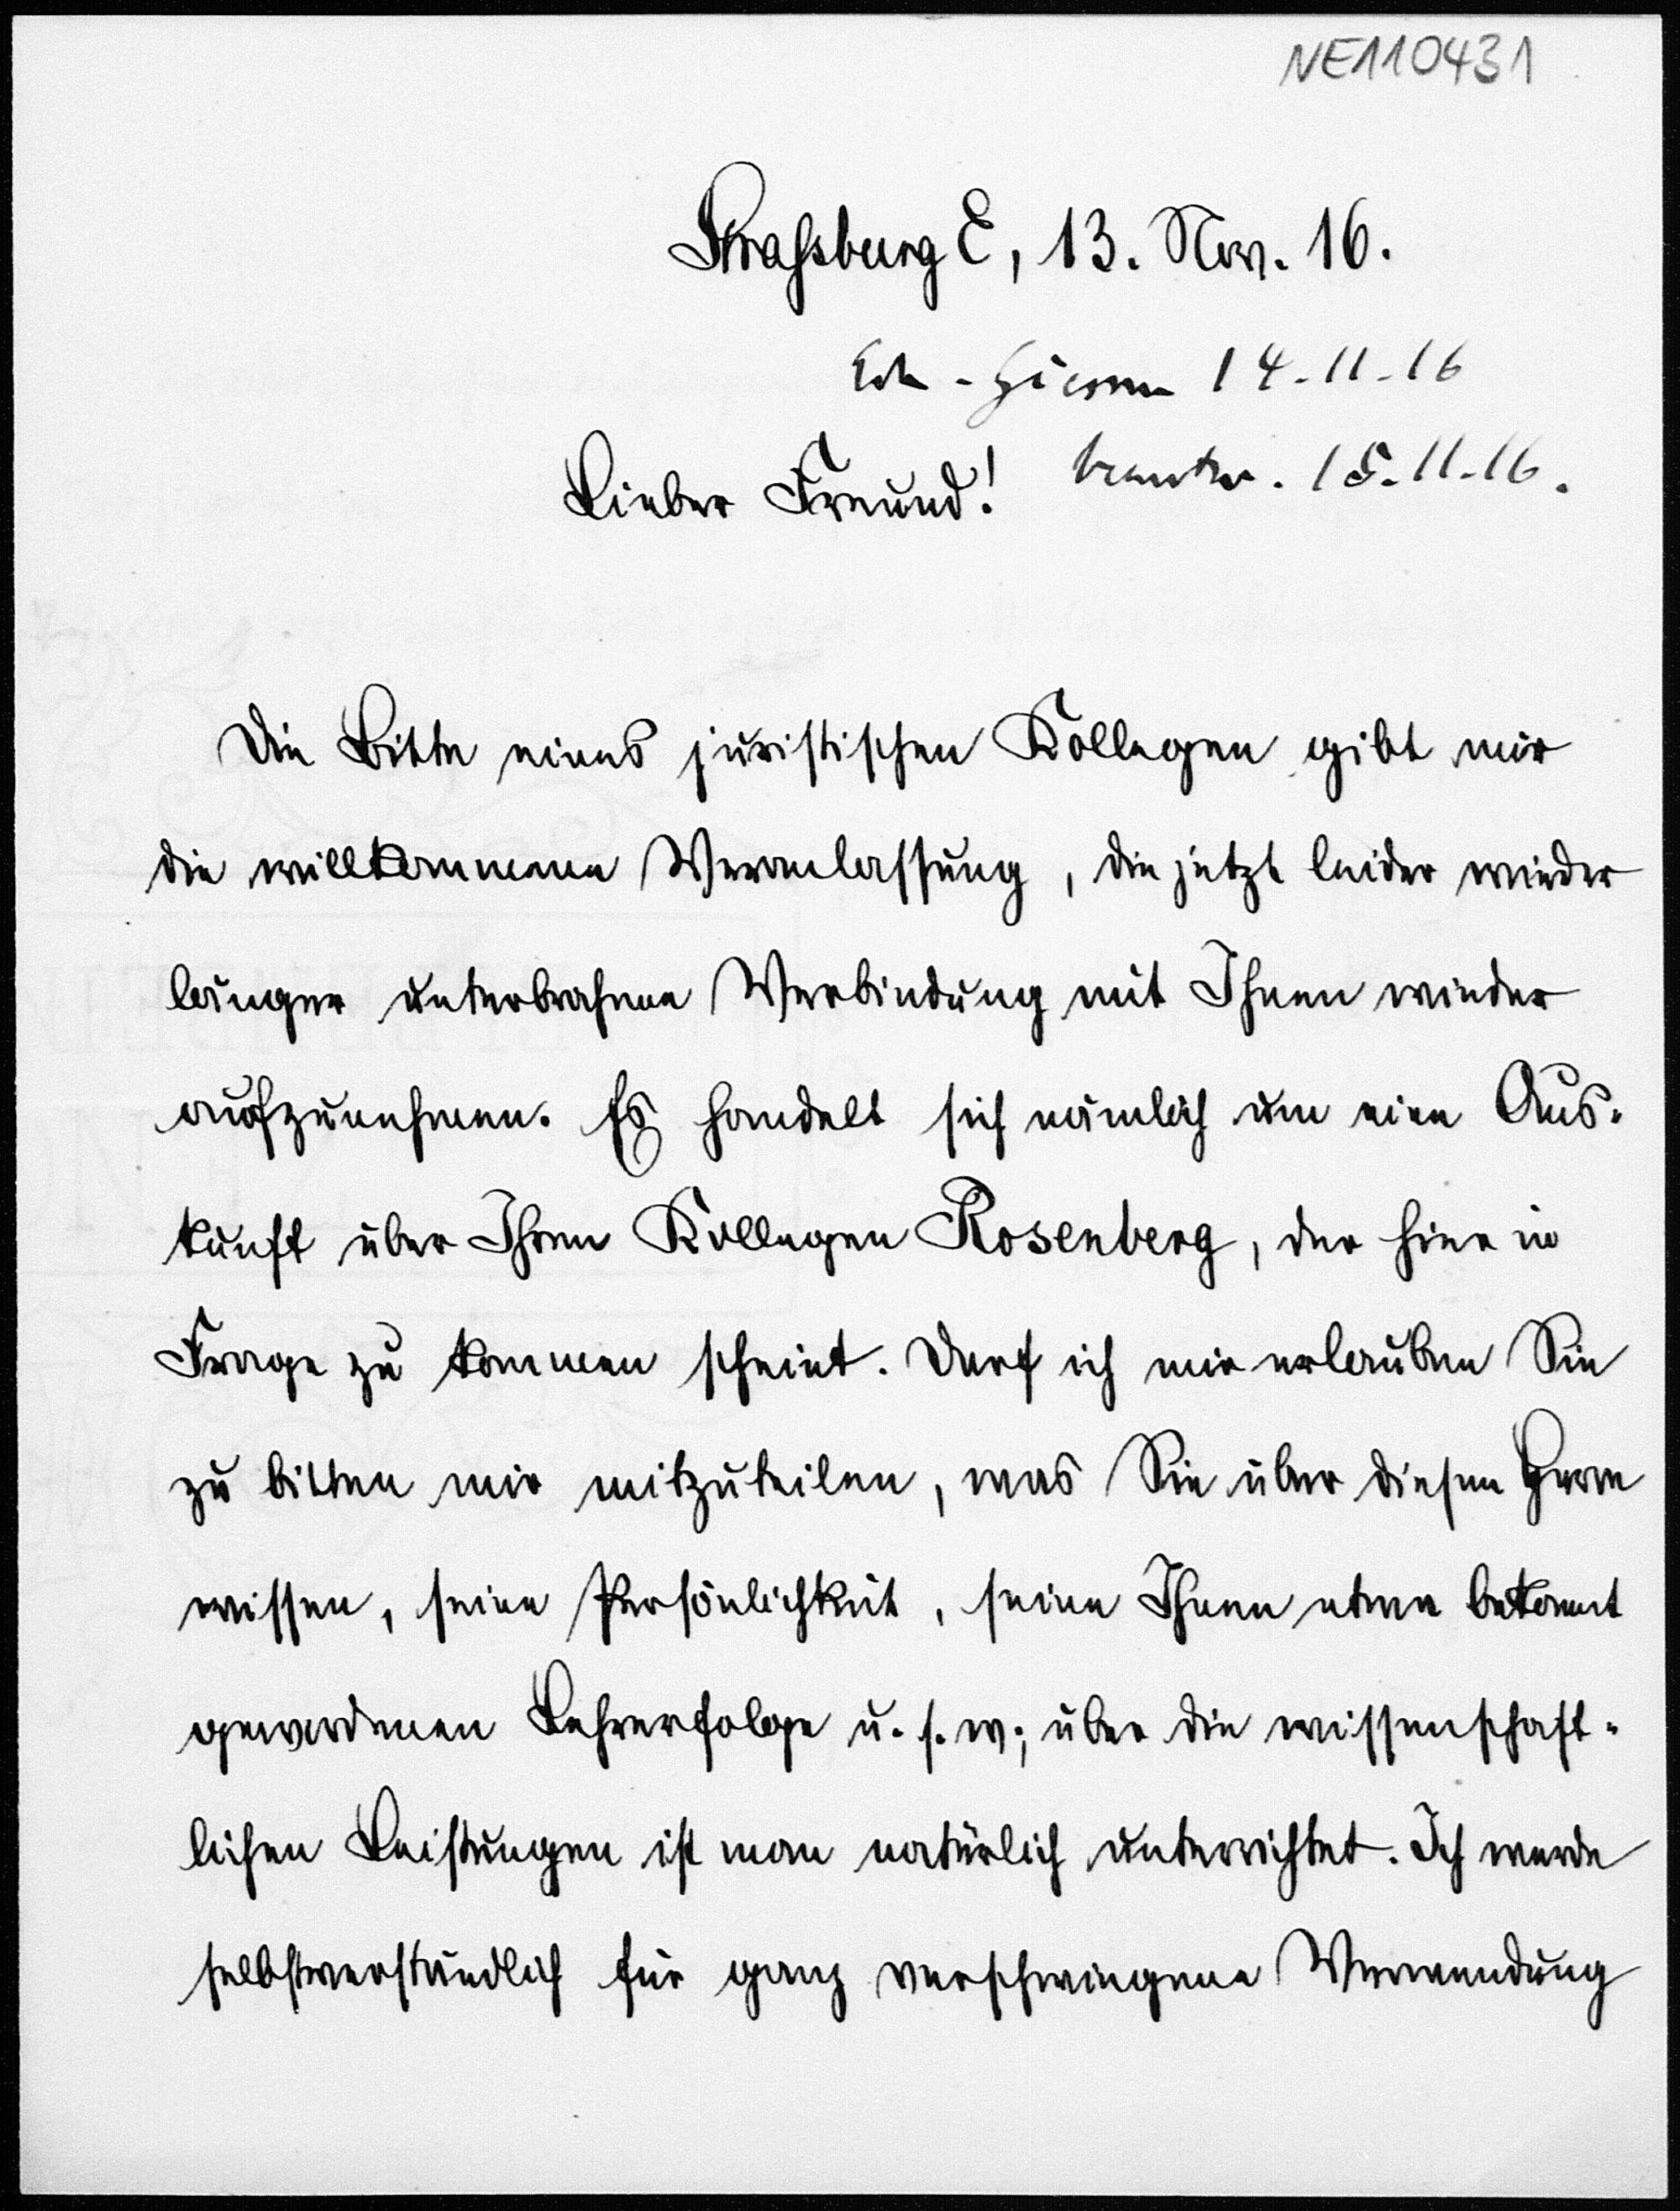 NE110431
Strassburg E, 13. Nov. 16.
Erh. Giessen 14-11-16
Lieber Freund! beantw. 15-11-16.
Die Bitte eines juristischen Kollegen gibt mir
die willkommene Veranlassung, die jetzt leider wieder
länger unterbrochene Verbindung mit Ihnen wieder
aufzunehmen. Es handelt sich nämlich um eine Aus-
kunft über Ihren Kollegen Rosenberg, der hier in
Frage zu kommen scheint. Darf ich mir erlauben Sie
zu bitten mir mitzuteilen, was Sie über diesen Herrn
wissen, seine Persönlichkeit, seine Ihnen etwa bekannt
gewordenen Lehrerfolge u. s. w.; über die wissenschaft-
lichen Leistungen ist man natürlich unterrichtet. Ich werde
selbstverständlich für ganz verschwiegene Verwendung